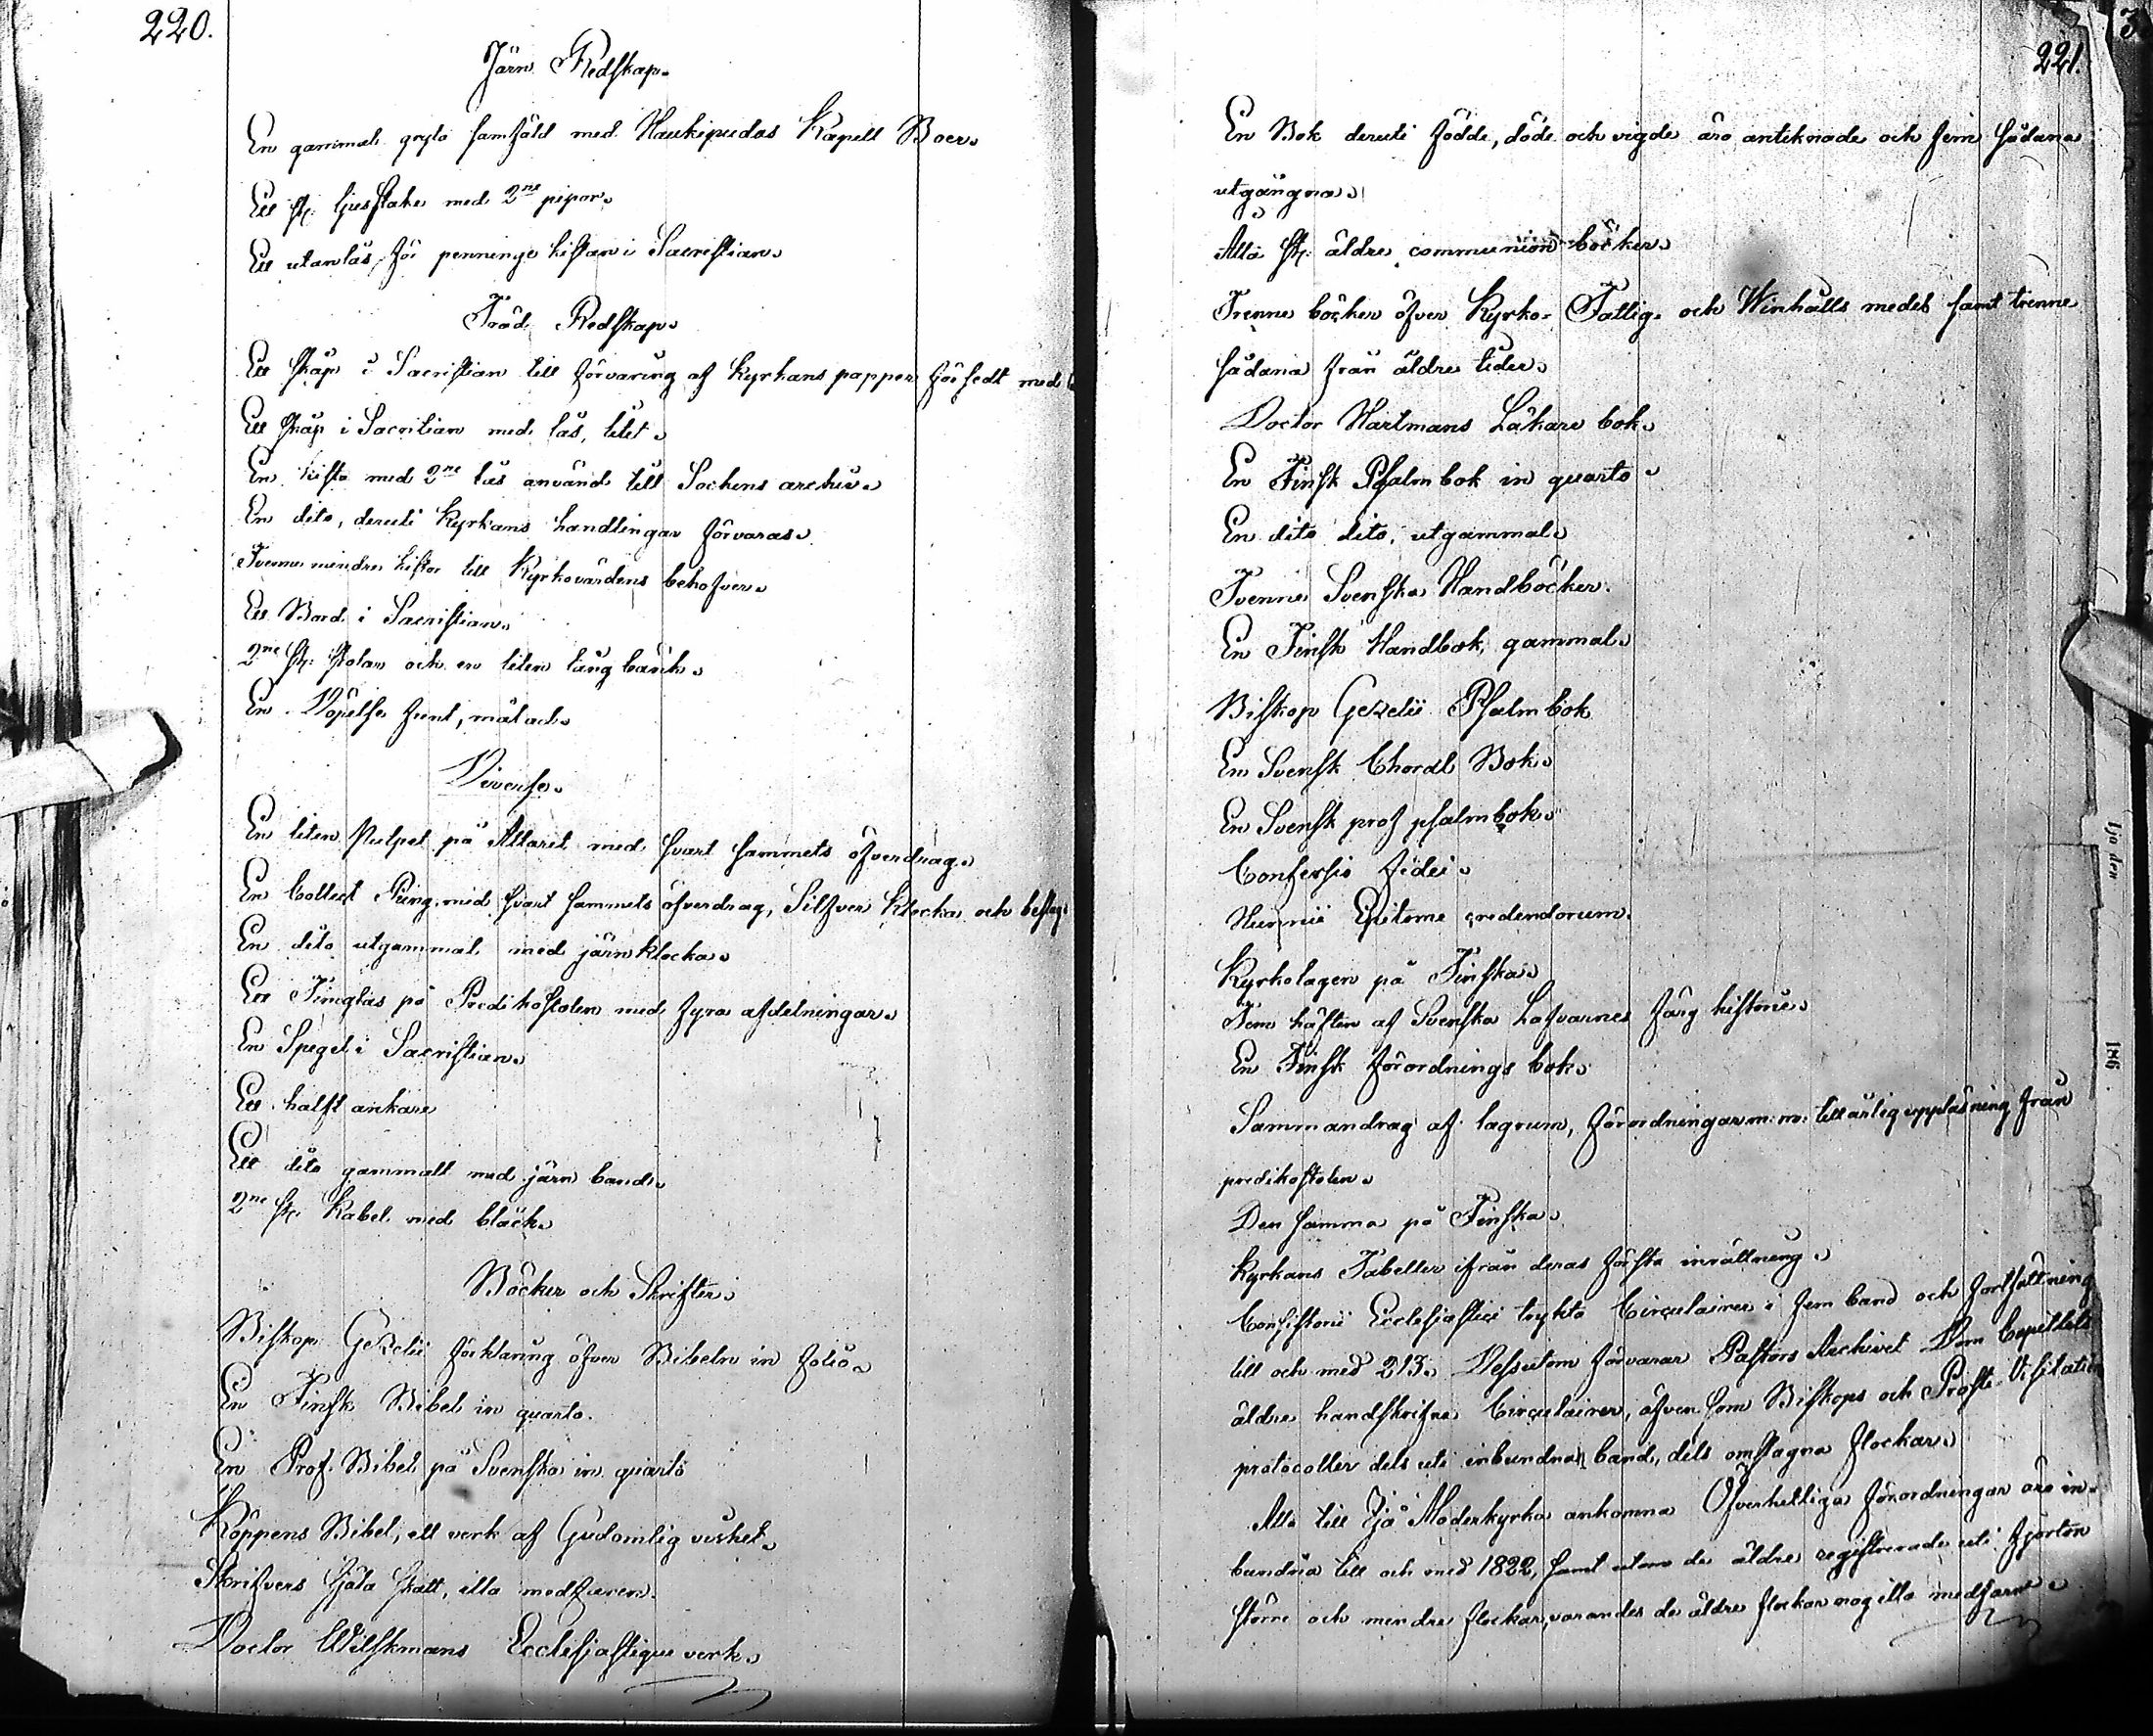 220.
Järn Redskap.
En gammal gryta samfäld med Haukipudas Kapell Boer.
Ett st. ljusstake med 2ne pipor.
Ett utanlås för penninge kistan i Sacristian.
Träd Redskap.
Ett skåp i Sacristian till förvaring af Kyrkans papper försedt med
Ett skåp i Sacritian med lås, litet.
En kista med 2ne lås använd till Sockens archiv.
En dito, deruti Kyrkans handlingar förvaras.
Tvenne mindre kistor till Kyrkovärdens behofver.
Ett Bord i Sacristian.
2ne st. stolar och en liten lång bänk.
En Döpelse funt, målad.
Diverse.
En liten Pulpet på Altaret med svart sammets öfverdrag.
En Collect Pung med svart sammets öfverdrag, Silfver Klocka och beslag
En dito utgammal med järn klocka.
Ett Timglas på Predikostolen med fyra afdelningar.
En Spegel i Sacristian.
Ett halft ankare
Ett dito gammalt med järn band.
2ne st. Kabel med bläck.
Böcker och Skrifter.
Biskop Gezelii förklaring öfver Bibeln in folio.
En Finsk Bibel in quarto.
En Prof. Bibel på Svenska in quarto
Köppens Bibel, ett verk af Gudomlig vishet.
Skrifvers Själa skatt, illa medfaren.
Doctor Wilskmans Ecclesiastique verk.
221.
En Bok deruti födde, döde och vigde äro antecknade och fem sådana
utgångna.
Åtta st. äldre communion böcker.
Trenne böcker öfver Kyrko- Fattig- och Winhålls medel samt trenne
sådana från äldre tider.
Doctor Hartmans Läkare bok.
En Finsk Psalm bok in quarto
En dito dito, utgammal.
Tvenne Svenska Handböcker.
En Finsk Handbok, gammal.
Biskop Gezelii Psalm bok
En Svensk Choral Bok.
En Svensk prof psalmbok.
Confessio fidei.
Epitome credendorum.
Kyrkolagen på Finska.
Fem häften af Svenska Lafvarnes färg historie.
En Finsk förordnings bok.
Sammandrag af lagrum, förordningar m: m: till årlig uppläsning från
predikostolen.
Den samma på Finska.
Kyrkans Tabeller ifrån deras första inrättning.
Consistorii Ecclesiastici trykta Circulairer i fem band och fortsättning
till och med 213. Dessutom förvarar Pastors Archivet Dom Capitlets
äldre handskrifne Circulairer, äfven som Biskops och Prosts Visitations
protocoller dels uti inbundna band, dels omslagna flockar.
Alla till Ijå Moderkyrka ankomna Öfverhetliga förordningar äro in-
bundna till och med 1822, samt utom de äldre registrerade uti fjorton
större och mindre flockar, varandes de äldre flockar nog illa medfarne.
Ijo den
186